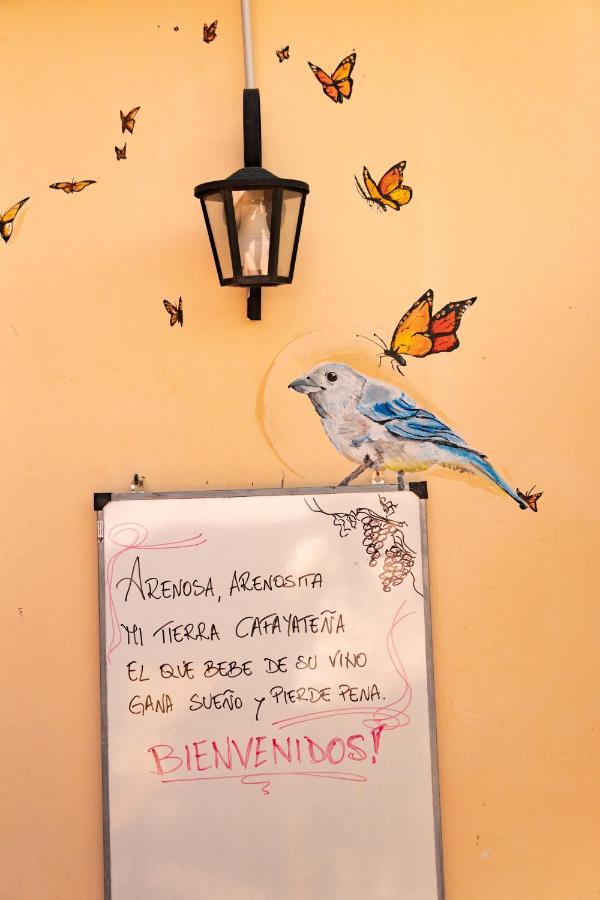 ARENOSA, ARENOSITA
MI TIERRA CAFAYATEÑA
EL QUE BEBE DE SU VINO
GANA SUEÑO y PIERDE PENA.
BIENVENIDOS!